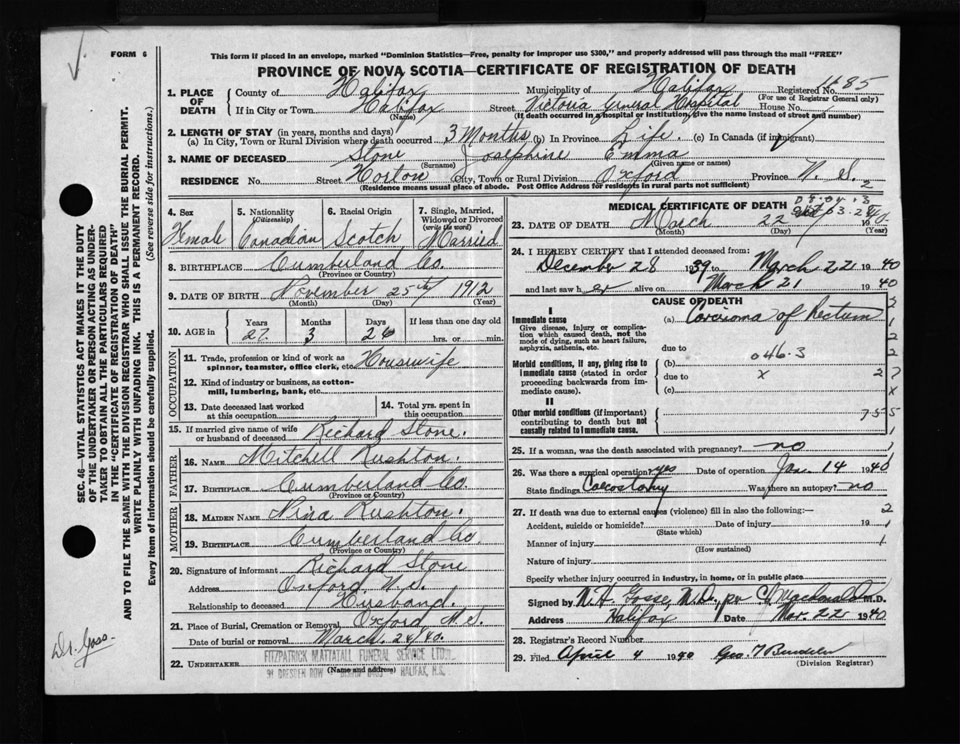 FORM 6
This form if placed in an envelope, marked "Dominion Statistics—Free, penalty for improper use $300," and properly addressed will pass through the mail "FREE"
PROVINCE OF NOVA SCOTIA—CERTIFICATE OF REGISTRATION OF DEATH
1. PLACE OF DEATH
County of Halifax Municipality of Halifax Registered No. 1185
(For use of Registrar General only)
If in City or Town Halifax Street Victoria General Hospital House No.
(Name) (If death occurred in a hospital or institution, give the name instead of street and number)
2. LENGTH OF STAY (in years, months and days)
(a) In City, Town or Rural Division where death occurred 3 Months (b) In Province Life. (c) In Canada (if immigrant)
3. NAME OF DECEASED Stone Josephine Emma
(Surname) (Given name or names)
RESIDENCE No. Street Horton City, Town or Rural Division Oxford Province N. S. 2
(Residence means usual place of abode. Post Office Address for residents in rural parts not sufficient)
4. Sex 5. Nationality (Citizenship) 6. Racial Origin 7. Single, Married, Widowed or Divorced (write the word)
Female Canadian Scotch Married
8. BIRTHPLACE Cumberland Co.
(Province or Country)
9. DATE OF BIRTH November 25th 1912
(Month) (Day) (Year)
10. AGE in Years Months Days If less than one day old
27 3 26 hrs. or min.
OCCUPATION
11. Trade, profession or kind of work as spinner, teamster, office clerk, etc. Housewife
12. Kind of industry or business, as cotton-mill, lumbering, bank, etc.
13. Date deceased last worked at this occupation
14. Total yrs. spent in this occupation
15. If married give name of wife or husband of deceased Richard Stone.
FATHER
16. NAME Mitchell Rushton
17. BIRTHPLACE Cumberland Co.
(Province or Country)
MOTHER
18. MAIDEN NAME Nina Rushton.
19. BIRTHPLACE Cumberland Co.
(Province or Country)
20. Signature of informant Richard Stone
Address Oxford, N.S.
Relationship to deceased Husband.
21. Place of Burial, Cremation or Removal Oxford, N.S.
Date of burial or removal March 24/40.
22. UNDERTAKER FITZPATRICK MATTATALL FUNERAL SERVICE LTD.
(Name and address)
91 DRESDEN ROW HALIFAX, N.S.
MEDICAL CERTIFICATE OF DEATH
23. DATE OF DEATH March 22 1940
(Month) (Day) (Year)
24. I HEREBY CERTIFY that I attended deceased from:
December 28 1939 to March 22 1940
and last saw her alive on March 21 1940
CAUSE OF DEATH
I
Immediate cause
Give disease, injury, or complication which caused death, not the mode of dying, such as heart failure, asphyxia, asthenia, etc.
(a) Carcinoma of Rectum
due to
046.3
Morbid conditions, if any, giving rise to immediate cause (stated in order proceeding backwards from immediate cause).
(b)
due to x 2 7
(c)
II
Other morbid conditions (if important) contributing to death but not causally related to immediate cause.
7-5-5
25. If a woman, was the death associated with pregnancy? no
26. Was there a surgical operation? yes Date of operation Jan. 14 1940
State findings Caecostomy Was there an autopsy? no
27. If death was due to external causes (violence) fill in also the following:—
Accident, suicide or homicide? Date of injury 19
(State which)
Manner of injury
(How sustained)
Nature of injury
Specify whether injury occurred in industry, in home, or in public place
Signed by N.H. Gosse, M.D., M.D.
Address Halifax Date Mar. 22 1940
28. Registrar's Record Number
29. Filed April 4 1940 Geo. T
(Division Registrar)
SEC. 46—VITAL STATISTICS ACT MAKES IT THE DUTY
OF THE UNDERTAKER OR PERSON ACTING AS UNDER-
TAKER TO OBTAIN ALL THE PARTICULARS REQUIRED
IN THE "CERTIFICATE OF REGISTRATION OF DEATH"
AND TO FILE THE SAME WITH THE DIVISION REGISTRAR WHO SHALL ISSUE THE BURIAL PERMIT.
WRITE PLAINLY WITH UNFADING INK. THIS IS A PERMANENT RECORD.
Every item of Information should be carefully supplied. (See reverse side for instructions.)
Dr. Goss.